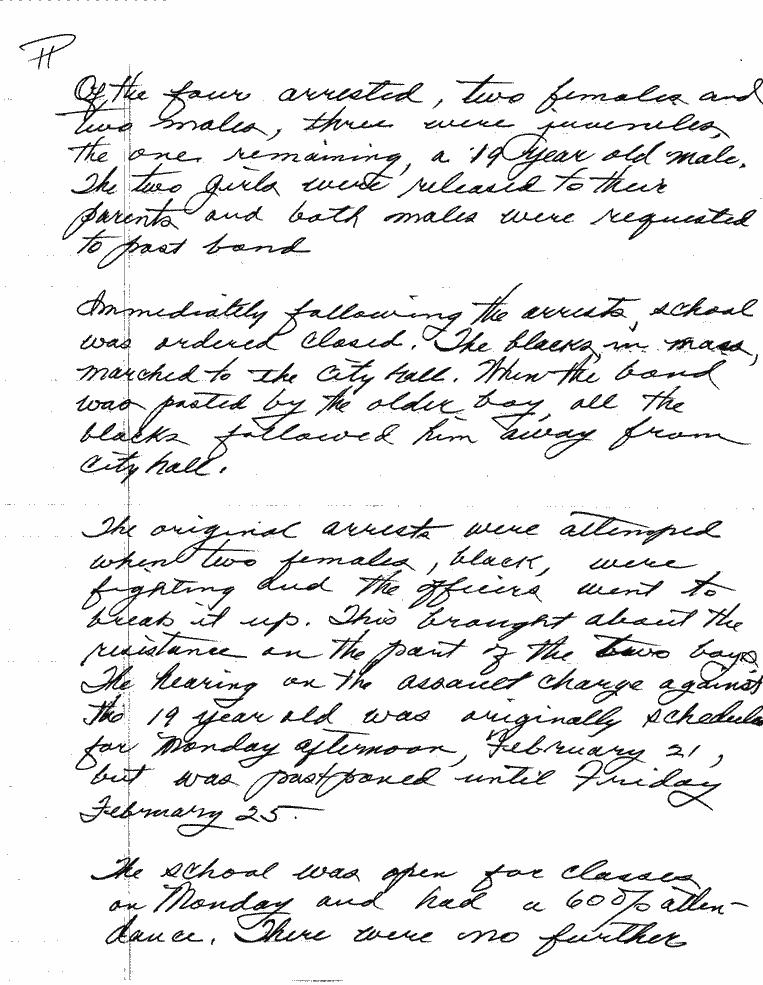 Of the four arrested, two females and
two males, three were juveniles,
the one remaining, a 19 year old male.
The two girls were released to their
parents and both males were requested
to post bond
Immediately following the arrests, school
was ordered closed. The blacks, in mass,
marched to the City hall. When the bond
was posted by the older boy, all the
blacks followed him away from
City hall.
The original arrests were attemped
when two females, black, were
fighting and the officers went to
break it up. This brought about the
resistance on the part of the two boys
The hearing on the assault charge against
the 19 year old was originally schedule
for Monday afternoon, February 21,
but was postponed until Friday
February 25.
The school was open for classes
on Monday and had a 60% atten-
dance. There were no further